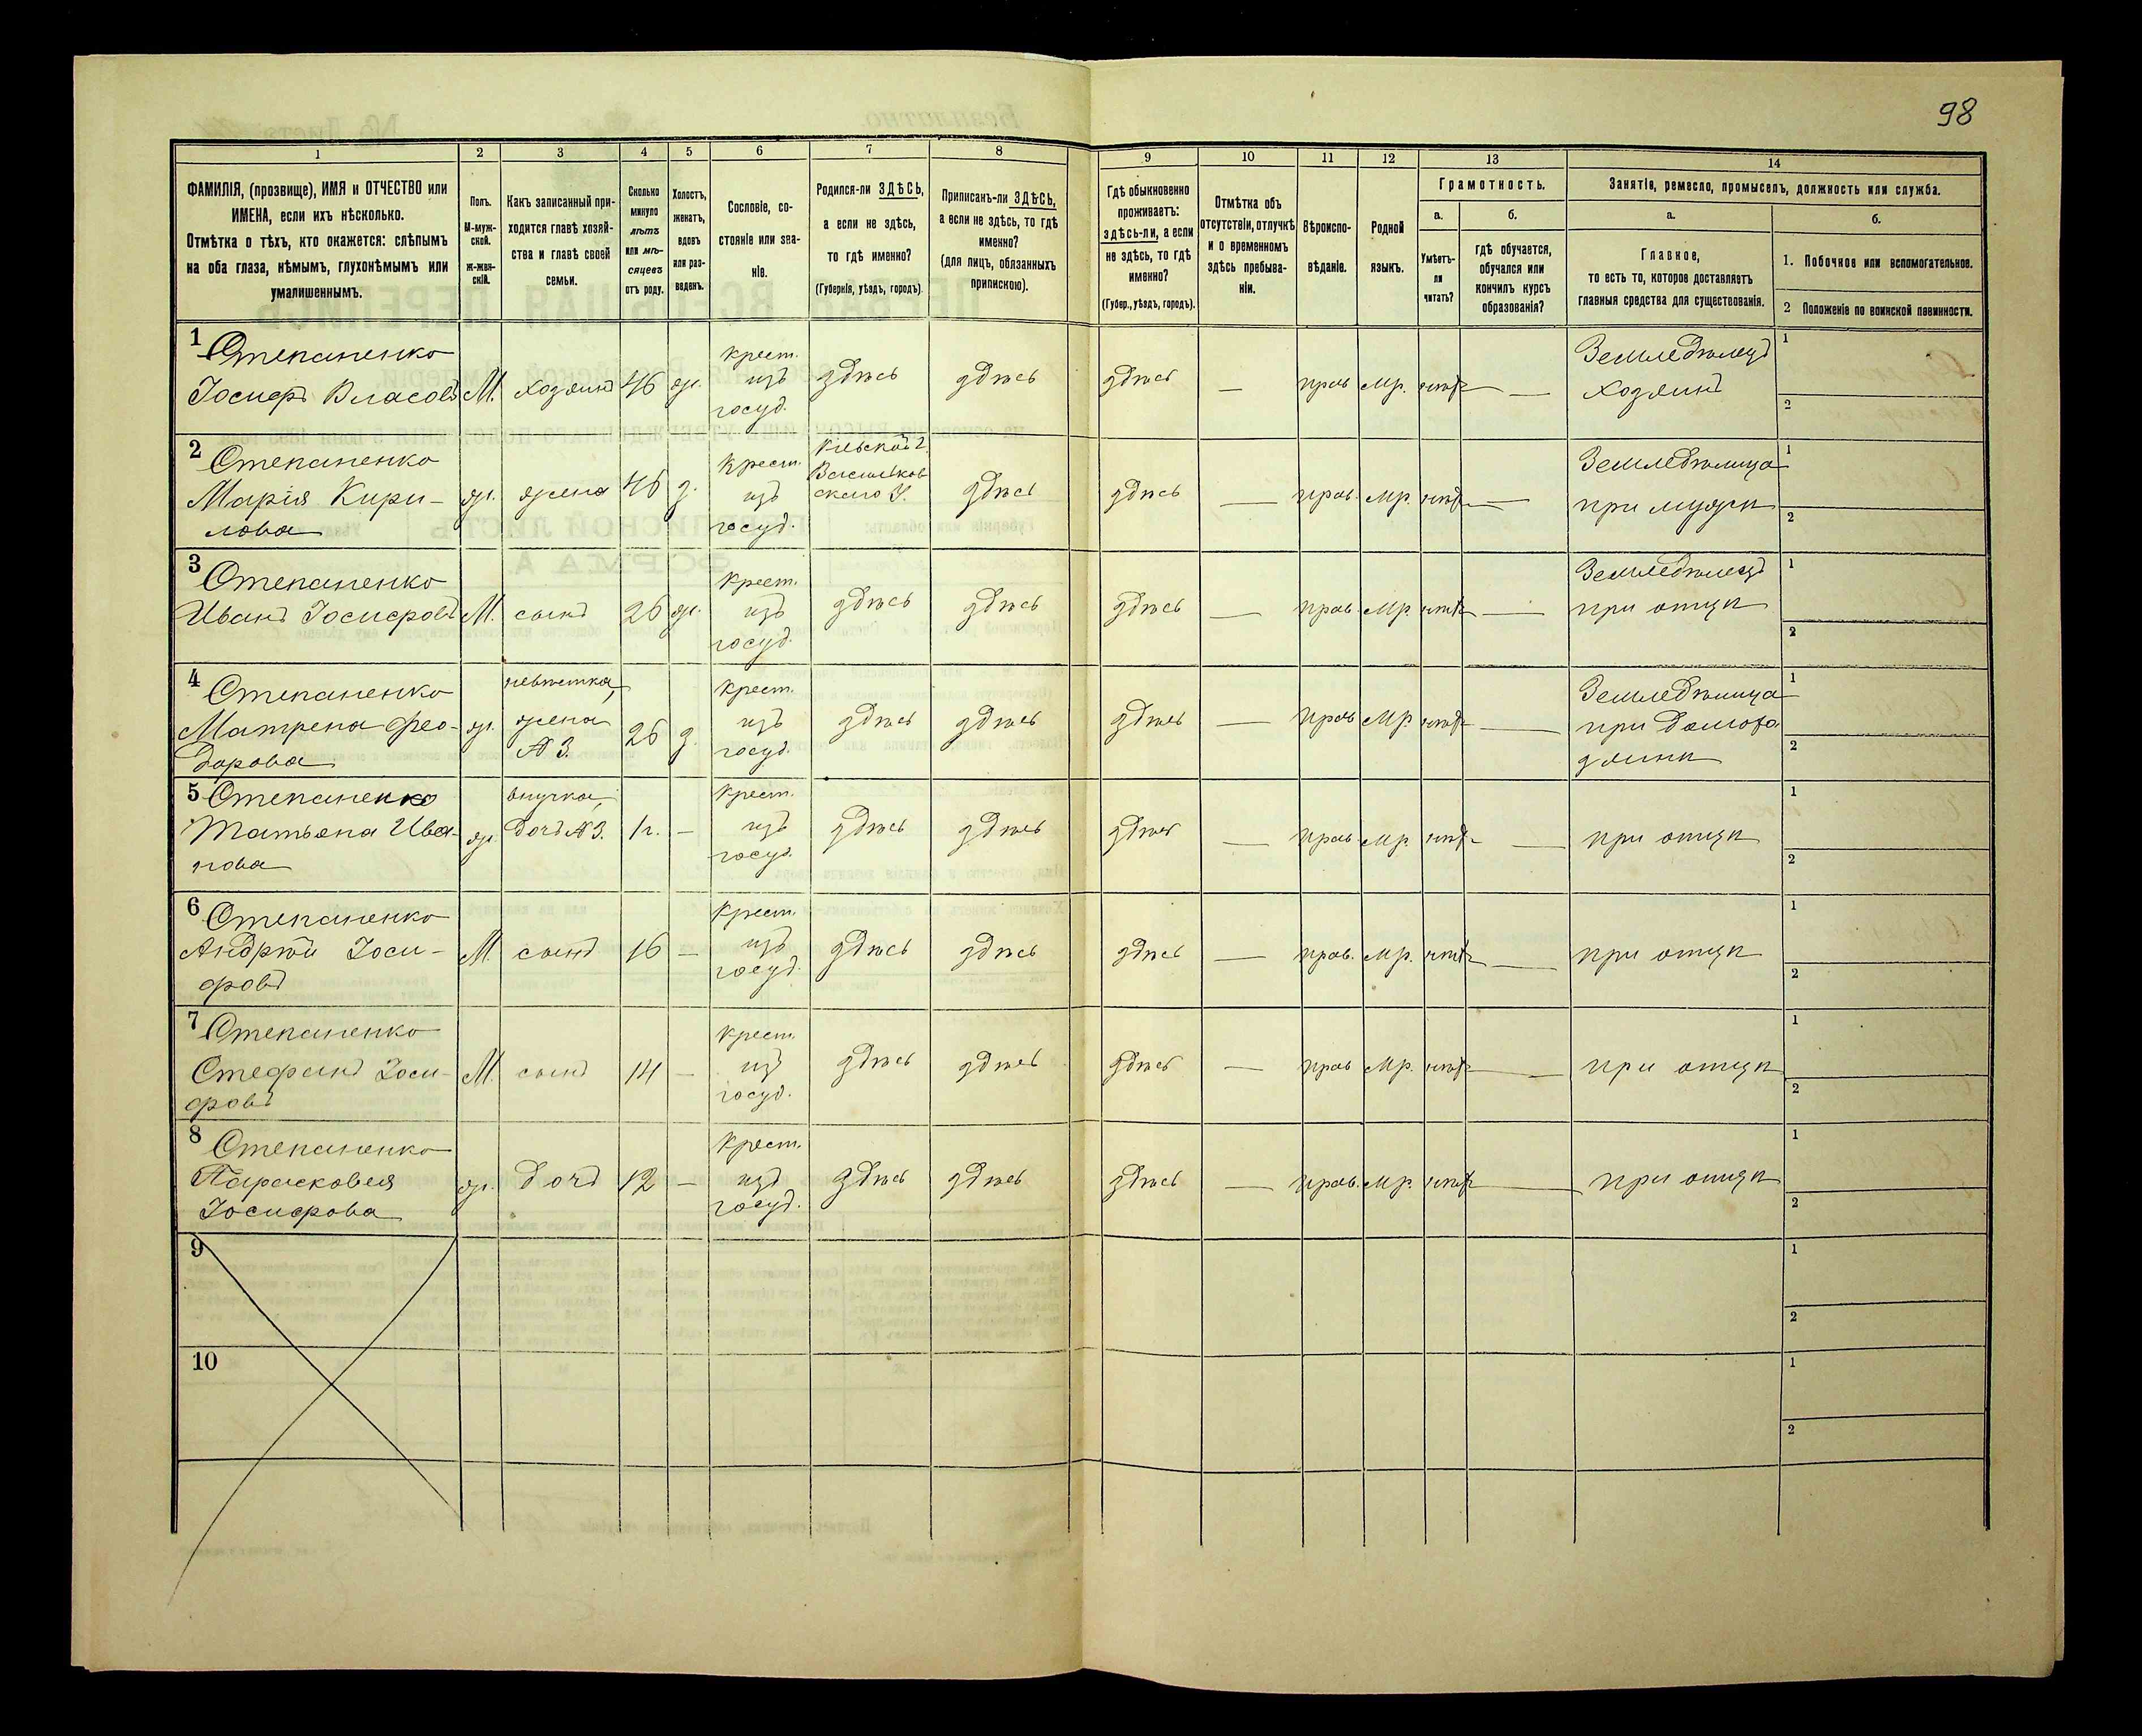 98
1 2 3 4 5 6 7 8 9 10 11 12 13 14
ФАМИЛІЯ, (прозвище), ИМЯ и ОТЧЕСТВО или
ИМЕНА, если ихъ нѣсколько.
Отмѣтка о тѣхъ, кто окажется: слѣпымъ
на оба глаза, нѣмымъ, глухонѣмымъ или
умалишеннымъ.
Полъ.
М-муж-
ской.
ж-жен-
скій.
Какъ записанный при-
ходится главѣ хозяй-
ства и главѣ своей
семьи.
Сколько
минуло
лѣтъ
или мѣ-
сяцевъ
отъ роду.
Холостъ,
женатъ,
вдовъ
или раз-
веденъ.
Сословіе, со-
стояніе или зва-
ніе.
Родился-ли ЗДѢСЬ,
а если не здѣсь,
то гдѣ именно?
(Губернія, уѣздъ, городъ).
Приписанъ-ли ЗДѢСЬ,
а если не здѣсь, то гдѣ
именно?
(для лицъ, обязанныхъ
припискою).
Гдѣ обыкновенно
проживаетъ:
здѣсь-ли, а если
не здѣсь, то гдѣ
именно?
(Губер., уѣздъ, городъ).
Отмѣтка объ
отсутствіи, отлучкѣ
и о временномъ
здѣсь пребыва-
ніи.
Вѣроиспо-
вѣданіе.
Родной
языкъ.
Грамотность.
а. б.
Умѣетъ-
ли
читать?
гдѣ обучается,
обучался или
кончилъ курсъ
образованія?
Занятія, ремесло, промыселъ, должность или служба.
а. б.
Главное,
то есть то, которое доставляетъ
главныя средства для существованія.
1. Побочное или вспомогательное.
2 Положеніе по воинской повинности.
1 Степаненко
Іосифъ Власовъ
М.
хозяинъ
46
ж.
крест.
изъ
госуд.
здѣсь
здѣсь
здѣсь
—
прав
мр.
нѣтъ
—
Земледѣлецъ
хозяинъ
1
2
2 Степаненко
Марія Кири-
лова
ж.
жена
46
з.
крест.
изъ
госуд.
Кіевской г.
Васильков
скаго у.
здѣсь
здѣсь
—
прав.
мр.
нѣтъ
—
Земледѣлица
при мужѣ
1
2
3 Степаненко
Иванъ Іосифовъ
М.
сынъ
26
ж.
крест.
изъ
госуд.
здѣсь
здѣсь
здѣсь
—
прав.
мр.
нѣтъ
—
Земледѣлецъ
при отцѣ
1
2
4 Степаненко
Матрена Фео-
дорова
ж.
невѣстка,
жена
N 3.
26
з.
крест.
изъ
госуд.
здѣсь
здѣсь
здѣсь
—
прав
мр.
нѣтъ
—
Земледѣлица
при домохо
зяинѣ
1
2
5 Степаненко
Татьяна Ива-
нова
ж.
внучка,
дочь N 3.
1 г.
—
крест.
изъ
госуд.
здѣсь
здѣсь
здѣсь
—
прав
мр.
нѣтъ
—
при отцѣ
1
2
6 Степаненко
Андрѣй Іоси-
фовъ
М.
сынъ
16
—
крест.
изъ
госуд.
здѣсь
здѣсь
здѣсь
—
прав.
мр.
нѣтъ
—
при отцѣ
1
2
7 Степаненко
Стефанъ Іоси-
фовъ
М.
сынъ
14
—
крест.
изъ
госуд.
здѣсь
здѣсь
здѣсь
—
прав
мр.
нѣтъ
—
при отцѣ
1
2
8 Степаненко
Парасковея
Іосифова
ж.
дочь
12
—
крест.
изъ
госуд.
здѣсь
здѣсь
здѣсь
—
прав.
мр.
нѣтъ
—
при отцѣ
1
2
9
1
2
10
1
2